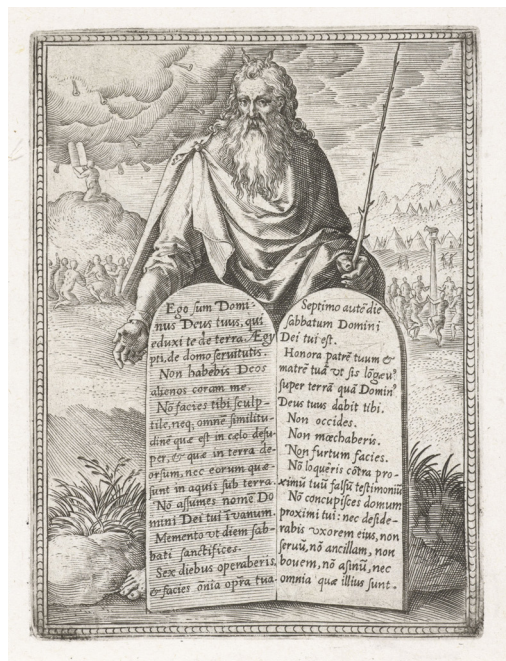 Ego sum Domi-
nus Deus tuus, qui
eduxi te de terra Ægy
pti, de domo servitutis.
Non habebis Deos
alienos coram me.
Nō facies tibi sculp-
tile, neq; omnē similitu-
dinē quæ est in cælo desu-
per, & quæ in terra de-
orsum, nec eorum quæ
sunt in aquis sub terra.
No assumes nomē Do
mini Dei tui ī vanum.
Memento vt diem sab-
bati sanctifices.
Sex diebus operaberis,
& facies ōnia opr̄a tua.
Septimo autē die
sabbatum Domini
Dei tui est.
Honora patrē tuum &
matrē tuā vt sis lōgæv9
super terrā quā Domin9
Deus tuus dabit tibi.
Non occides.
Non mœchaberis.
Non furtum facies.
Nō loquēris cōtra pro-
ximū tuū falsū testimoniū
Nō concupisces domum
proximi tui: nec deside-
rabis vxorem eius, non
servū, nō ancillam, non
bovem, nō asinū, nec
omnia quæ illius sunt.